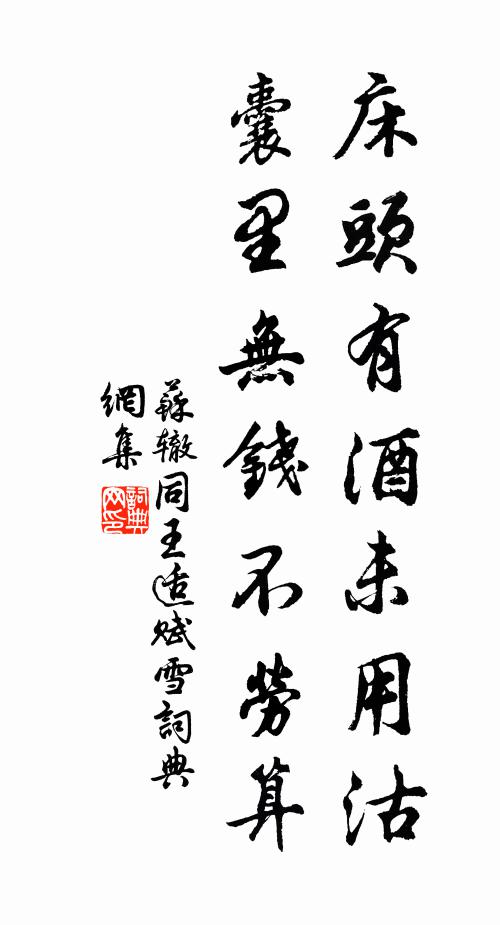 床頭有酒未用沽
囊里無錢不勞算
蘇辙同王适赋雪詞典
網集
詞典
网印